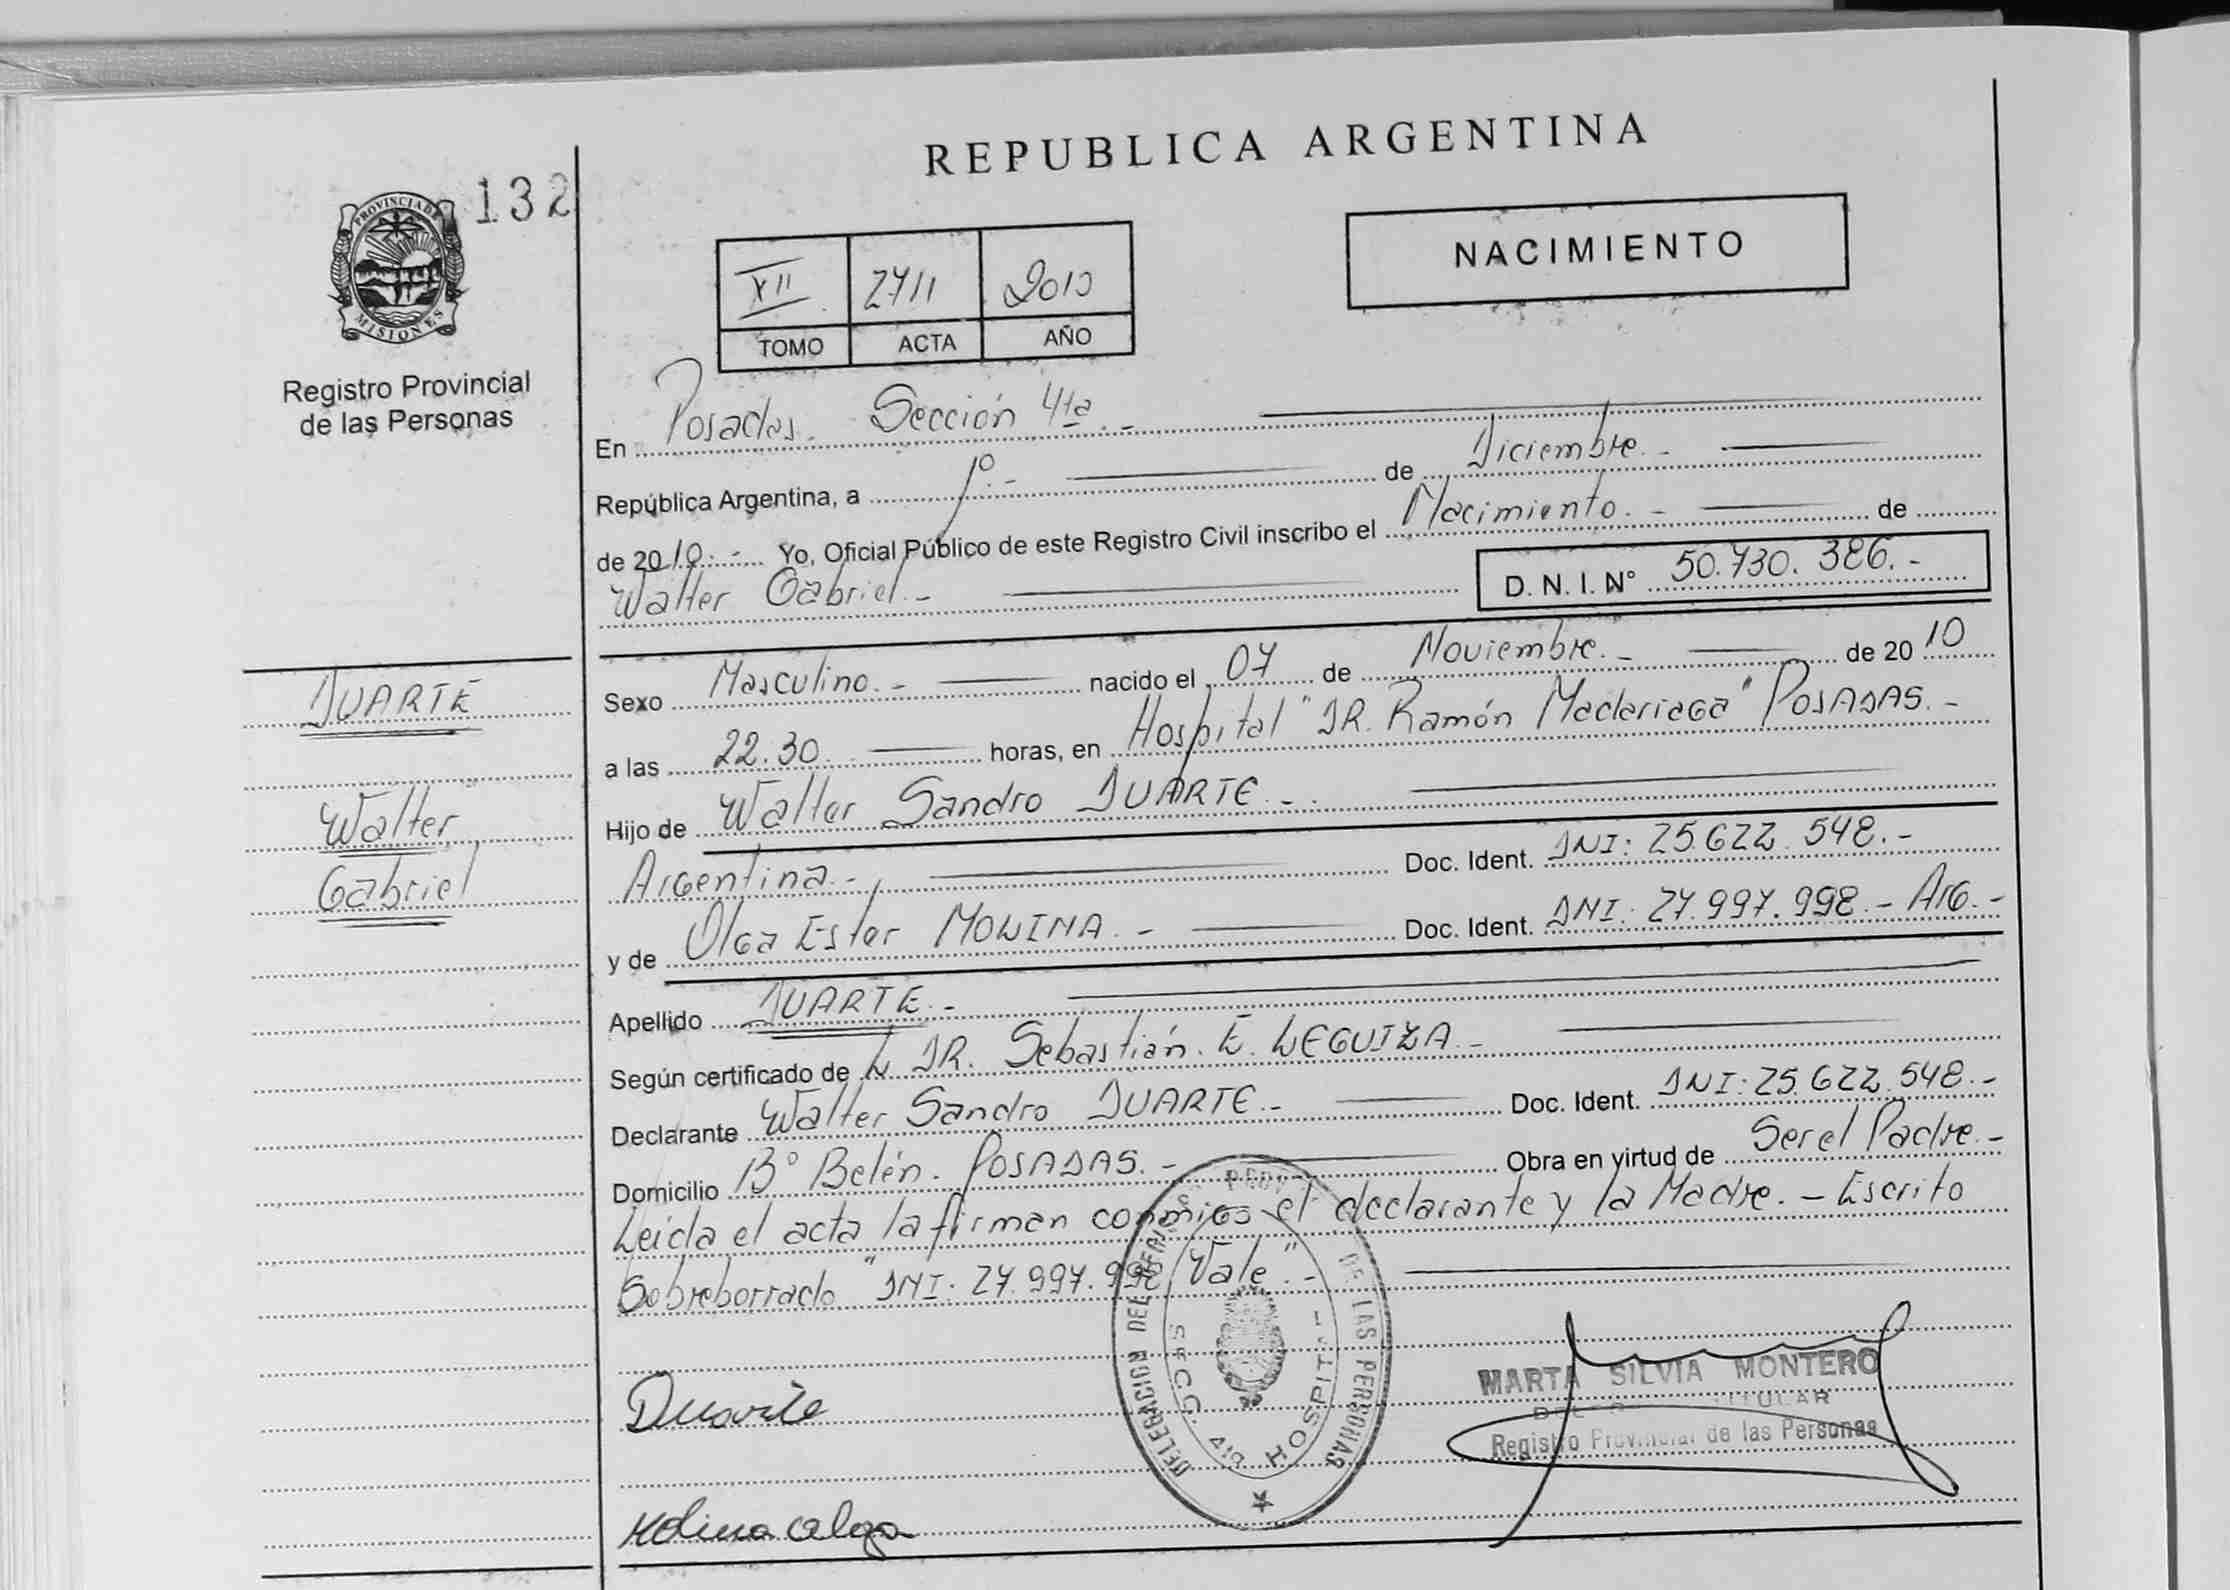 REPUBLICA ARGENTINA
132
PROVINCIA DE
MISIONES
Registro Provincial
de las Personas
NACIMIENTO
XII 2711 2010
TOMO ACTA AÑO
En Posadas. Sección 4ta.-
República Argentina, a 1º.- de Diciembre.-
de 2010.- Yo, Oficial Público de este Registro Civil inscribo el Nacimiento.- de
Walter Gabriel.- D.N.I. Nº 50.730.386.-
DUARTE
Walter
Gabriel
Sexo Masculino.- nacido el 07 de Noviembre.- de 2010
a las 22.30. horas, en Hospital "DR. Ramón Madariaga" POSADAS.-
Hijo de Walter Sandro DUARTE.-
Argentina.- Doc. Ident. DNI: 25.622.548.-
y de Olga Ester MOLINA.- Doc. Ident. DNI: 27.997.998.- Arg.-
Apellido DUARTE.-
Según certificado de L DR. Sebastián. E. LEGUIZA.-
Declarante Walter Sandro DUARTE.- Doc. Ident. DNI: 25.622.548.-
Domicilio Bº Belén. POSADAS.- Obra en virtud de Ser el Padre.-
Leída el acta la firman conmigo el declarante y la Madre.- Escrito
Sobreborrado "DNI: 27.997.998 Vale".-
DELEGACION DEL DE LAS PERSONAS
SECC. 4ta HOSPITAL
Duarte
MARTA SILVIA MONTERO
TITULAR
Registro Provincial de las Personas
Molina Olga